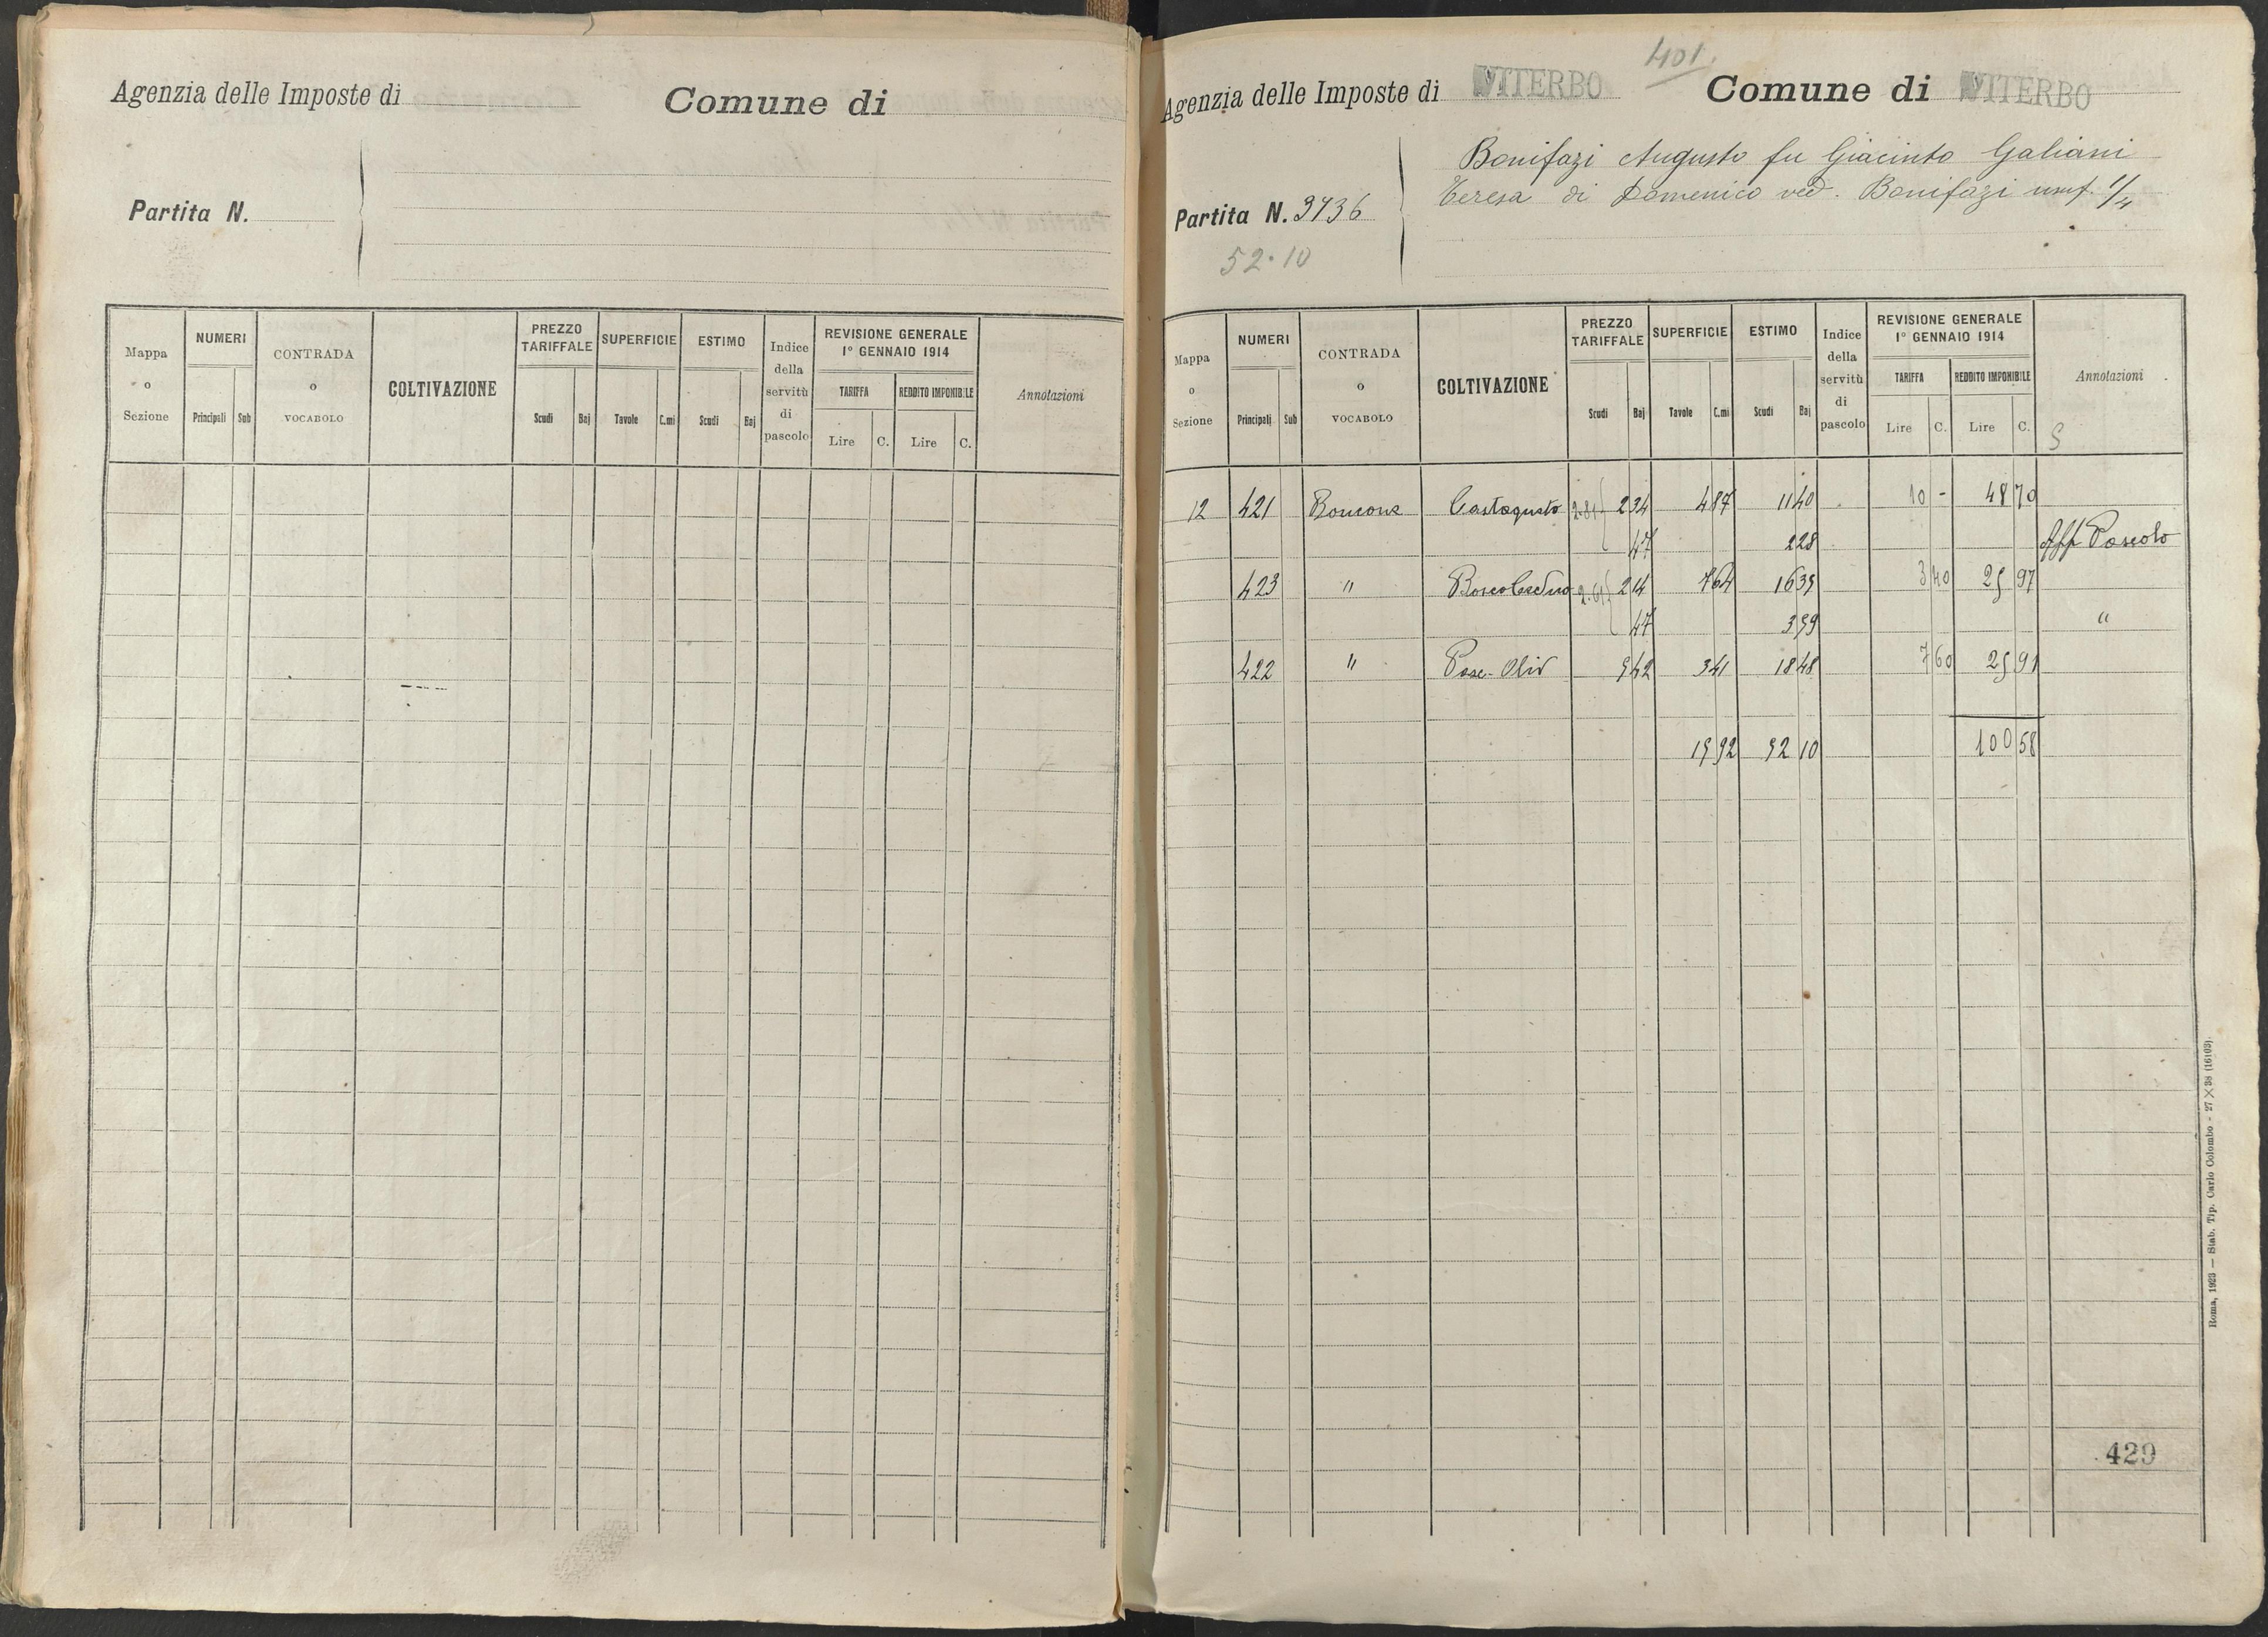 Agenzia delle Imposte di
Comune di
Partita N.
Mappa o Sezione
NUMERI
Principali Sub
CONTRADA o VOCABOLO
COLTIVAZIONE
PREZZO TARIFFALE
Scudi Baj
SUPERFICIE
Tavole C.mi
ESTIMO
Scudi Baj
Indice della servitù di pascolo
REVISIONE GENERALE
1° GENNAIO 1914
TARIFFA
Lire C.
REDDITO IMPONIBILE
Lire C.
Annotazioni
401.
Agenzia delle Imposte di VITERBO Comune di VITERBO
Bonifazi Augusto fu Giacinto Galiani
Teresa di Domenico ved. Bonifazi usuf. 1/4
Partita N. 3736
52.10
Mappa o Sezione
NUMERI
Principali Sub
CONTRADA o VOCABOLO
COLTIVAZIONE
PREZZO TARIFFALE
Scudi Baj
SUPERFICIE
Tavole C.mi
ESTIMO
Scudi Baj
Indice della servitù di pascolo
REVISIONE GENERALE
1° GENNAIO 1914
TARIFFA
Lire C.
REDDITO IMPONIBILE
Lire C.
Annotazioni
12 421 2.81 2 34 4 87 11 40 10 - 48 70
47 2 28 Aff Pascolo
423 " Bosco Ceduo 2.61 2 14 7 64 16 35 3 40 25 97
47 3 59 "
422 " Pasc. Oliv 5 42 3 41 18 48 7 60 25 91
15 92 52 10 100 58
429
Roma, 1923 — Stab. Tip. Carlo Colombo - 27 × 38 (16103).